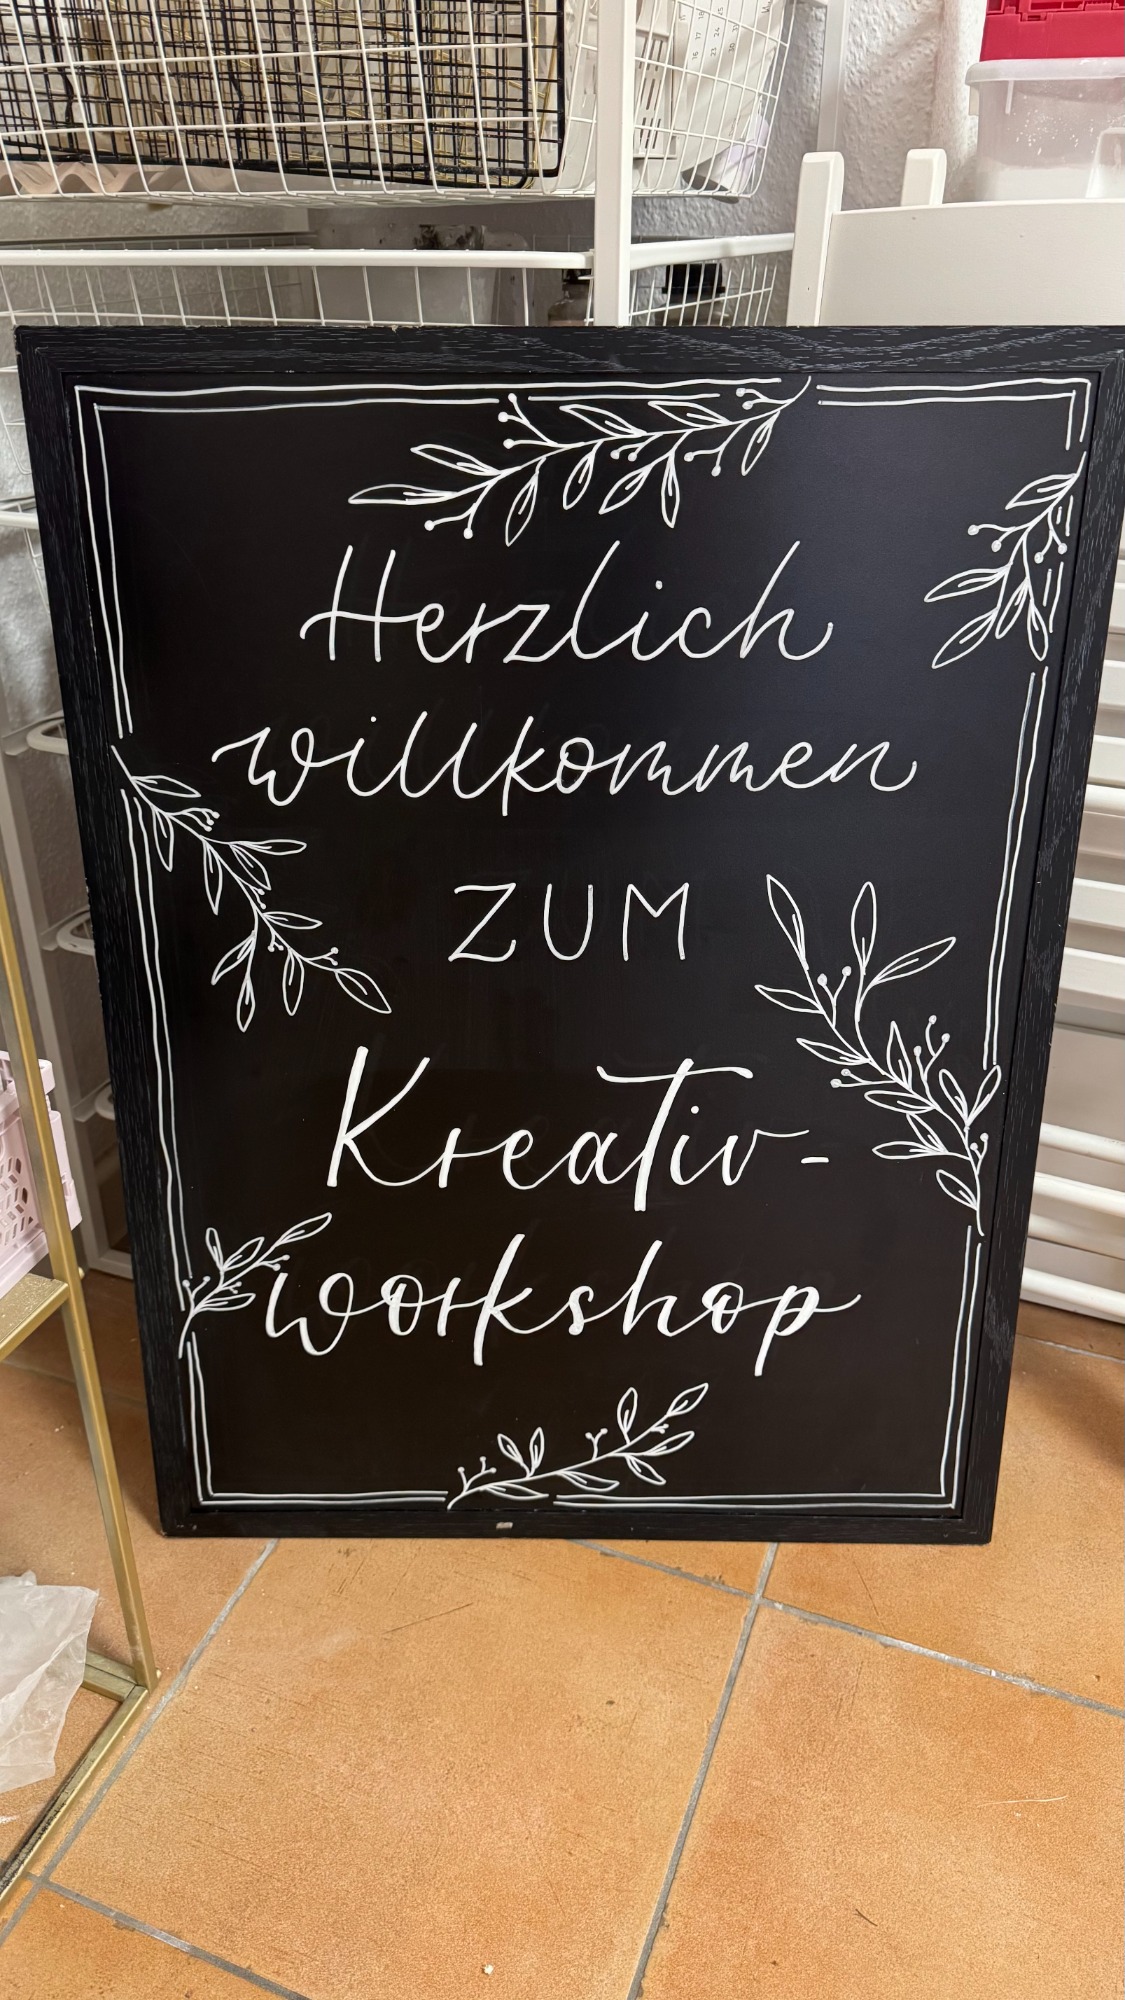 Herzlich
willkommen
ZUM
Kreativ-
workshop